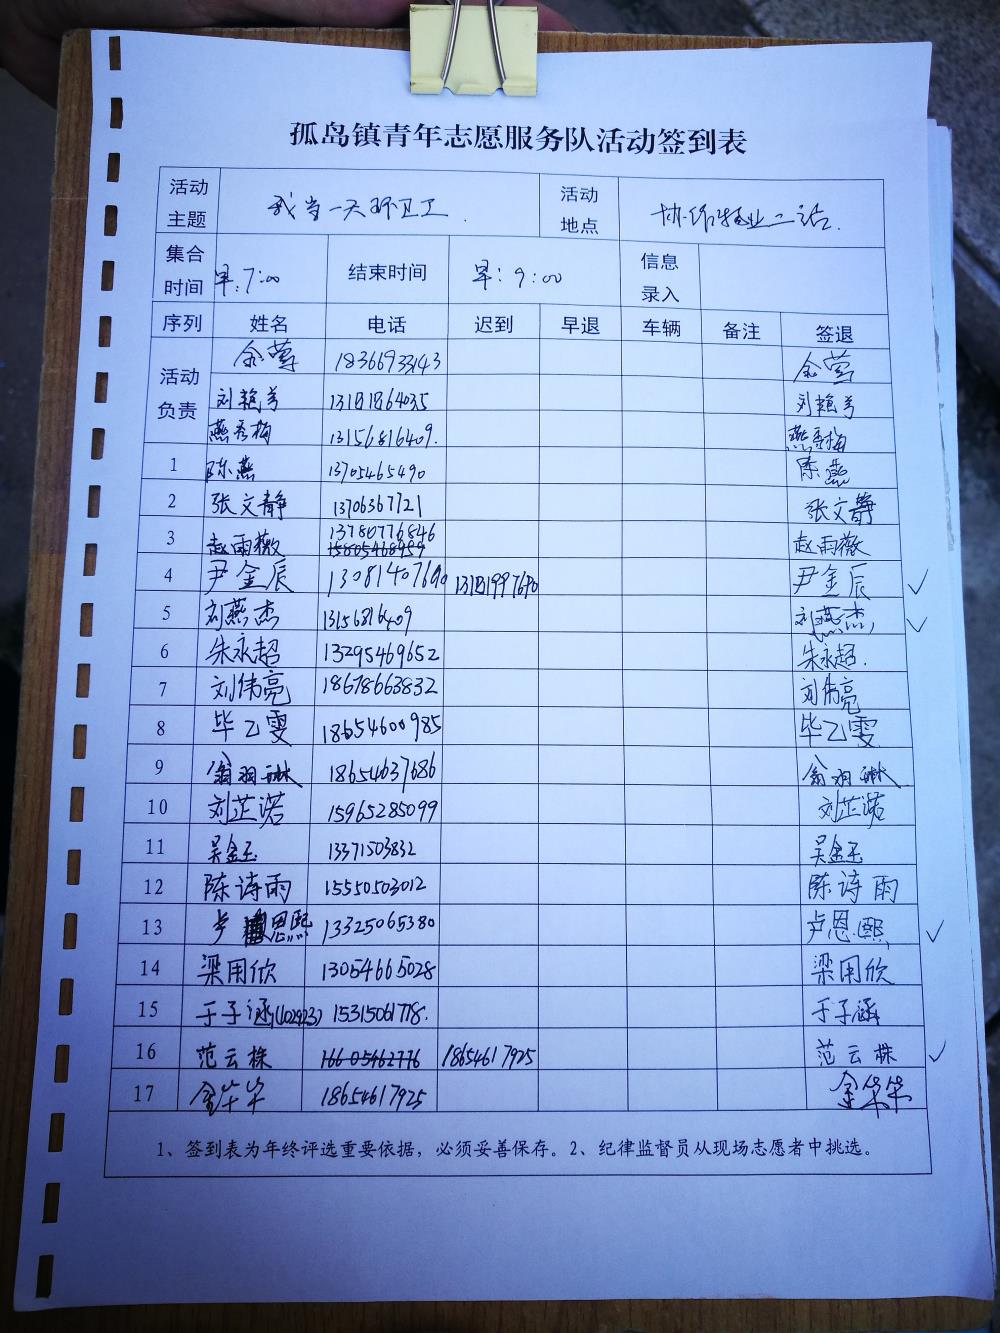 孤岛镇青年志愿服务队活动签到表
活动主题 我当一天环卫工. 活动地点 协作物业二站.
集合时间 早:7:00 结束时间 早:9:00 信息录入
序列 姓名 电话 迟到 早退 车辆 备注 签退
活动负责 余莺 18366933143 余莺
刘艳芳 13181864035 刘艳芳
燕秀梅 13156816409. 燕秀梅
1 陈燕 13705465490 陈燕
2 张文静 13706367721 张文静
3 赵雨薇 13780776846 15805468959 赵雨薇
4 尹金辰 13081407690 13181997690 尹金辰 ✓
5 刘燕杰 13156816409 刘燕杰 ✓
6 朱永超 13295469652 朱永超.
7 刘伟亮 18678663832 刘伟亮
8 毕乙雯 18654600985 毕乙雯
9 翁羽琳 18654637686 翁羽琳
10 刘芷诺 15965285099 刘芷诺
11 吴金玉 13371503832 吴金玉
12 陈诗雨 15550503012 陈诗雨
13 卢恩熙 13325065380 卢恩熙 ✓
14 梁用欣 13054665028 梁用欣
15 于子涵(402923) 15315061778. 于子涵
16 范云株 16605462776 18654617925 范云株 ✓
17 金华华 18654617925 金华华
1、签到表为年终评选重要依据，必须妥善保存。2、纪律监督员从现场志愿者中挑选。